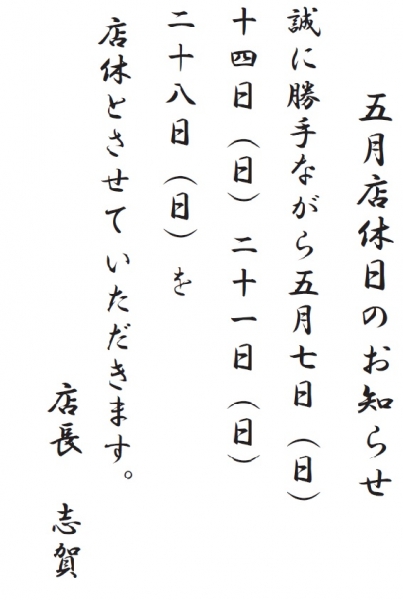 五月店休日のお知らせ
誠に勝手ながら五月七日（日）
十四日（日）二十一日（日）
二十八日（日）を
店休とさせていただきます。
店長　志賀